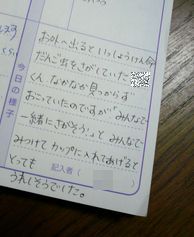 お外へ出るといっしょうけん命
だんご虫をさがしていた
くん。なかなか見つからず
おこっていたのですが「みんなで
一緒にさがそう！」と みんなで
みつけて カップに入れてあげると
とっても
うれしそうでした。
今日の様子
記入者（